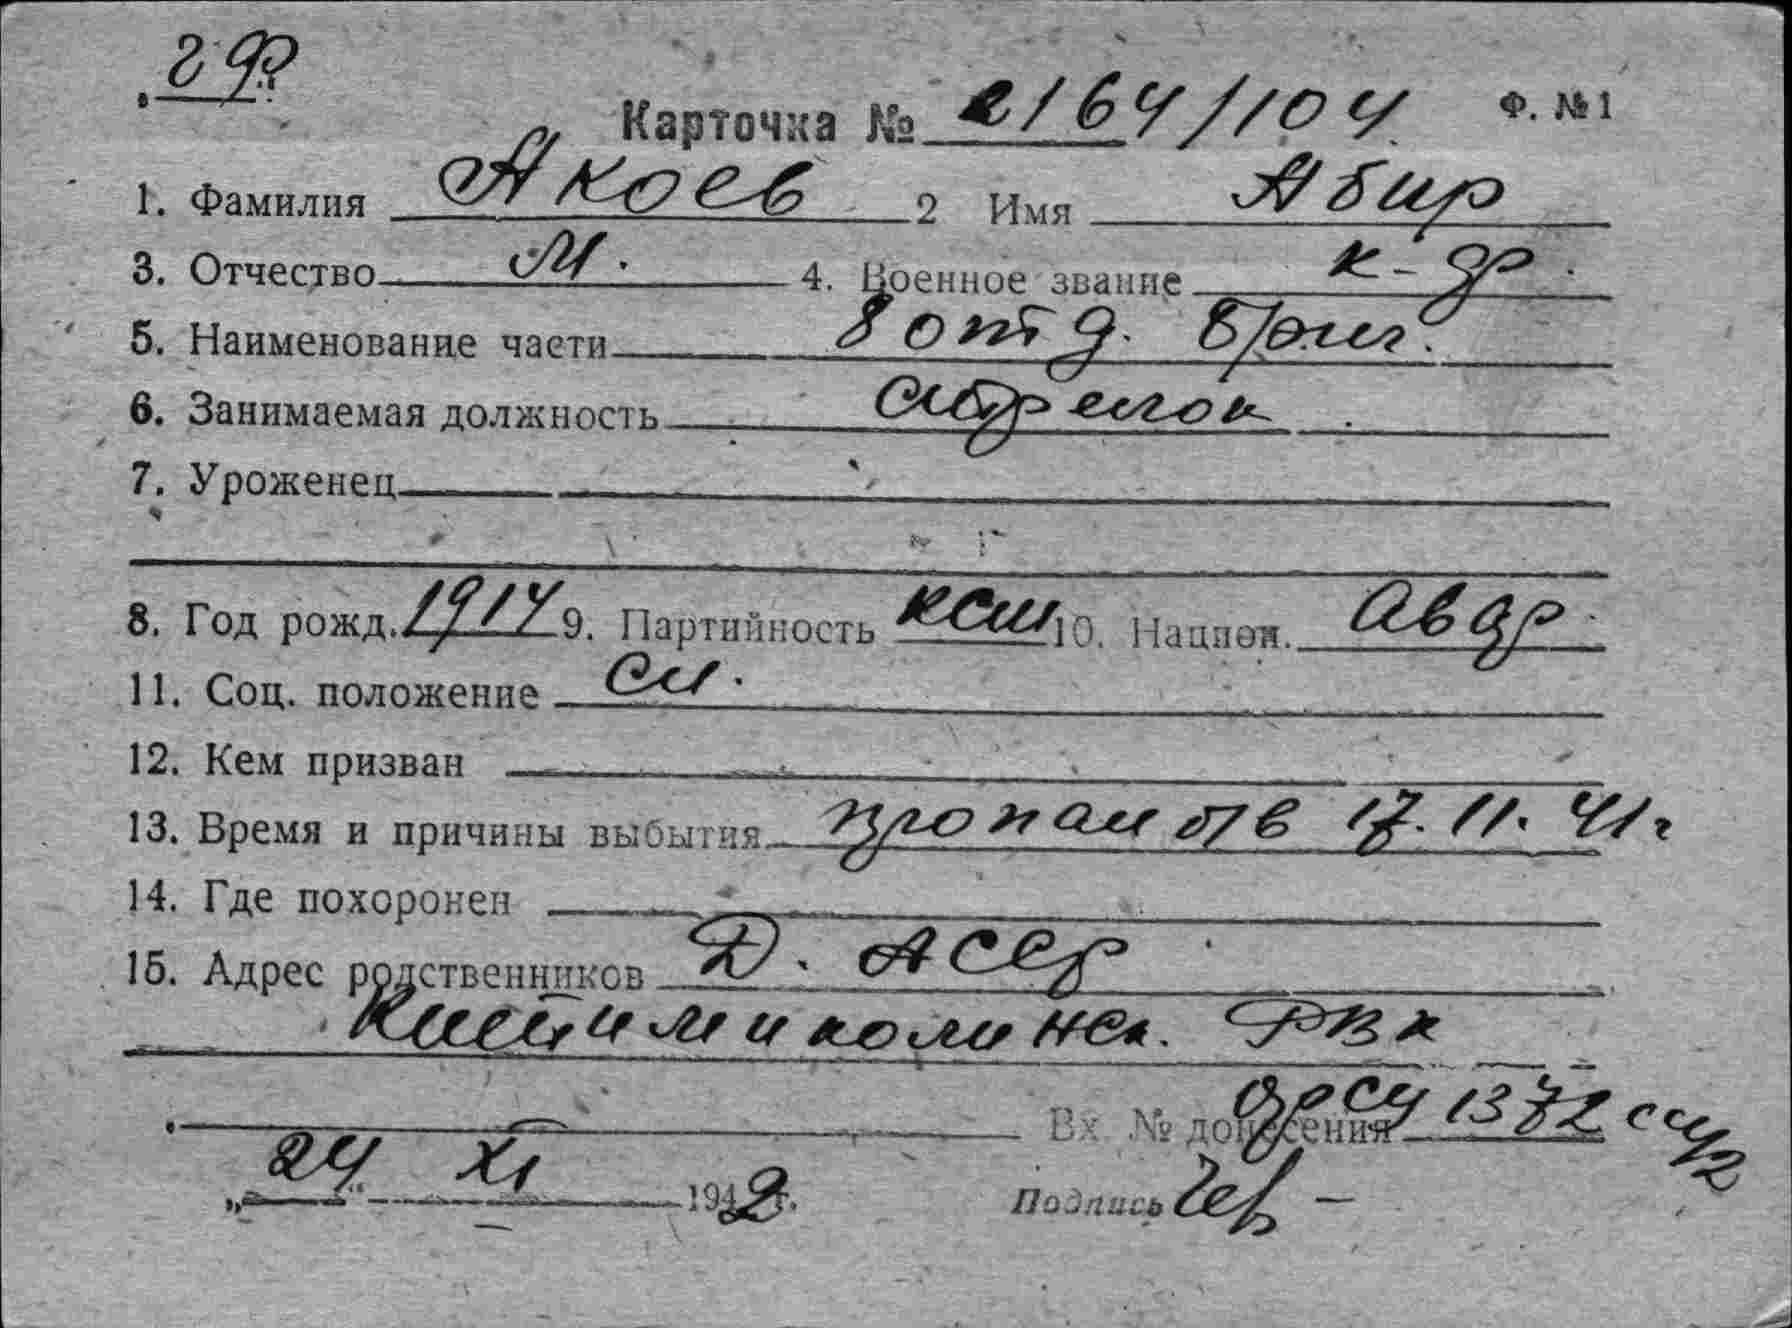 Карточка № 2164/104 Ф. №1
1. Фамилия Акоев 2 Имя Абир
3. Отчество М. 4. Военное звание к-др.
5. Наименование части 8 отд. бриг.
6. Занимаемая должность стрелок
7. Уроженец
8. Год рожд. 1914 9. Партийность ксм 10. Национ.
11. Соц. положение сл.
12. Кем призван
13. Время и причины выбытия пропал б/в 17.11.41г
14. Где похоронен
15. Адрес родственников Д. АССР
РВК
Вх. № донесения 1372
„24“ XI 1942г. Подпись